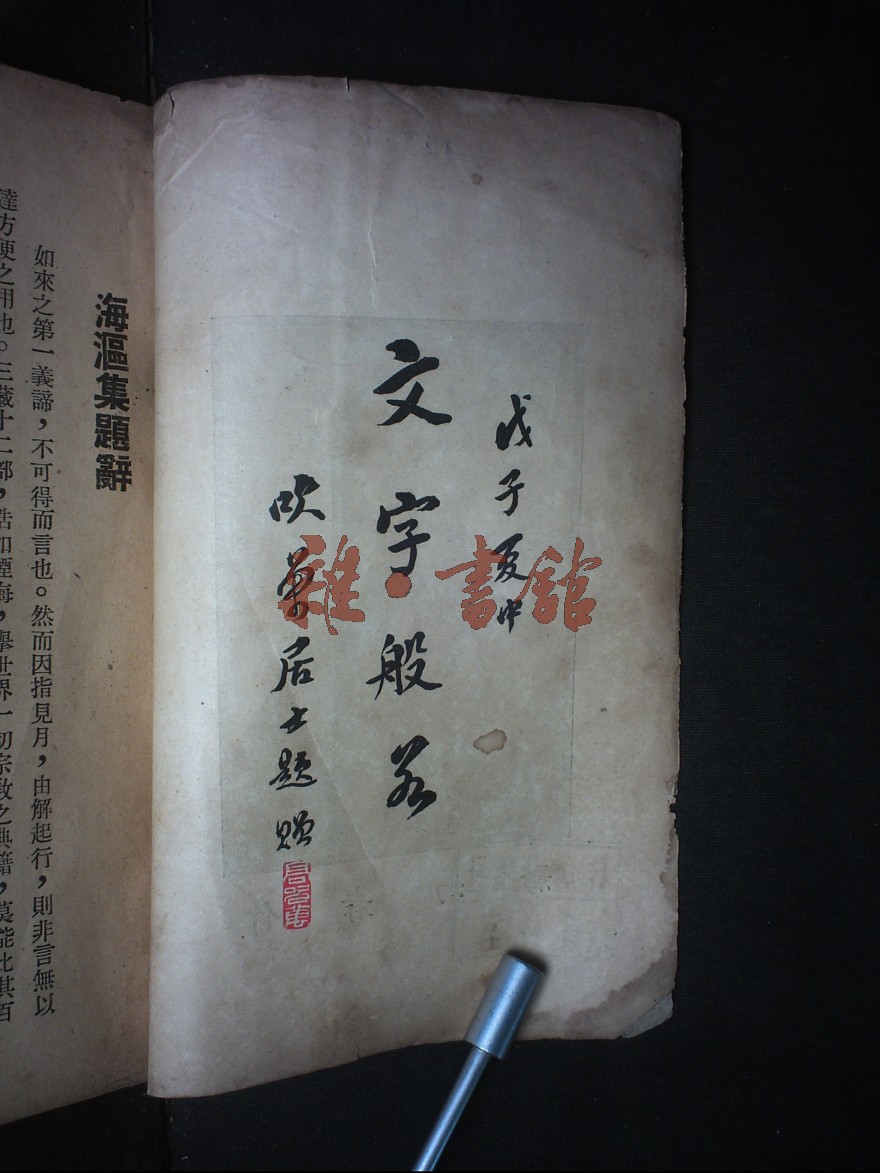 戊子夏中
文字般若
吹萬居士題贈
雜·書館
海漚集題辭
如來之第一義諦，不可得而言也。然而因指見月，由解起行，則非言無以
達方便之用也。三藏十二部，浩如煙海，舉世界一切宗教之典籍，莫能比其百